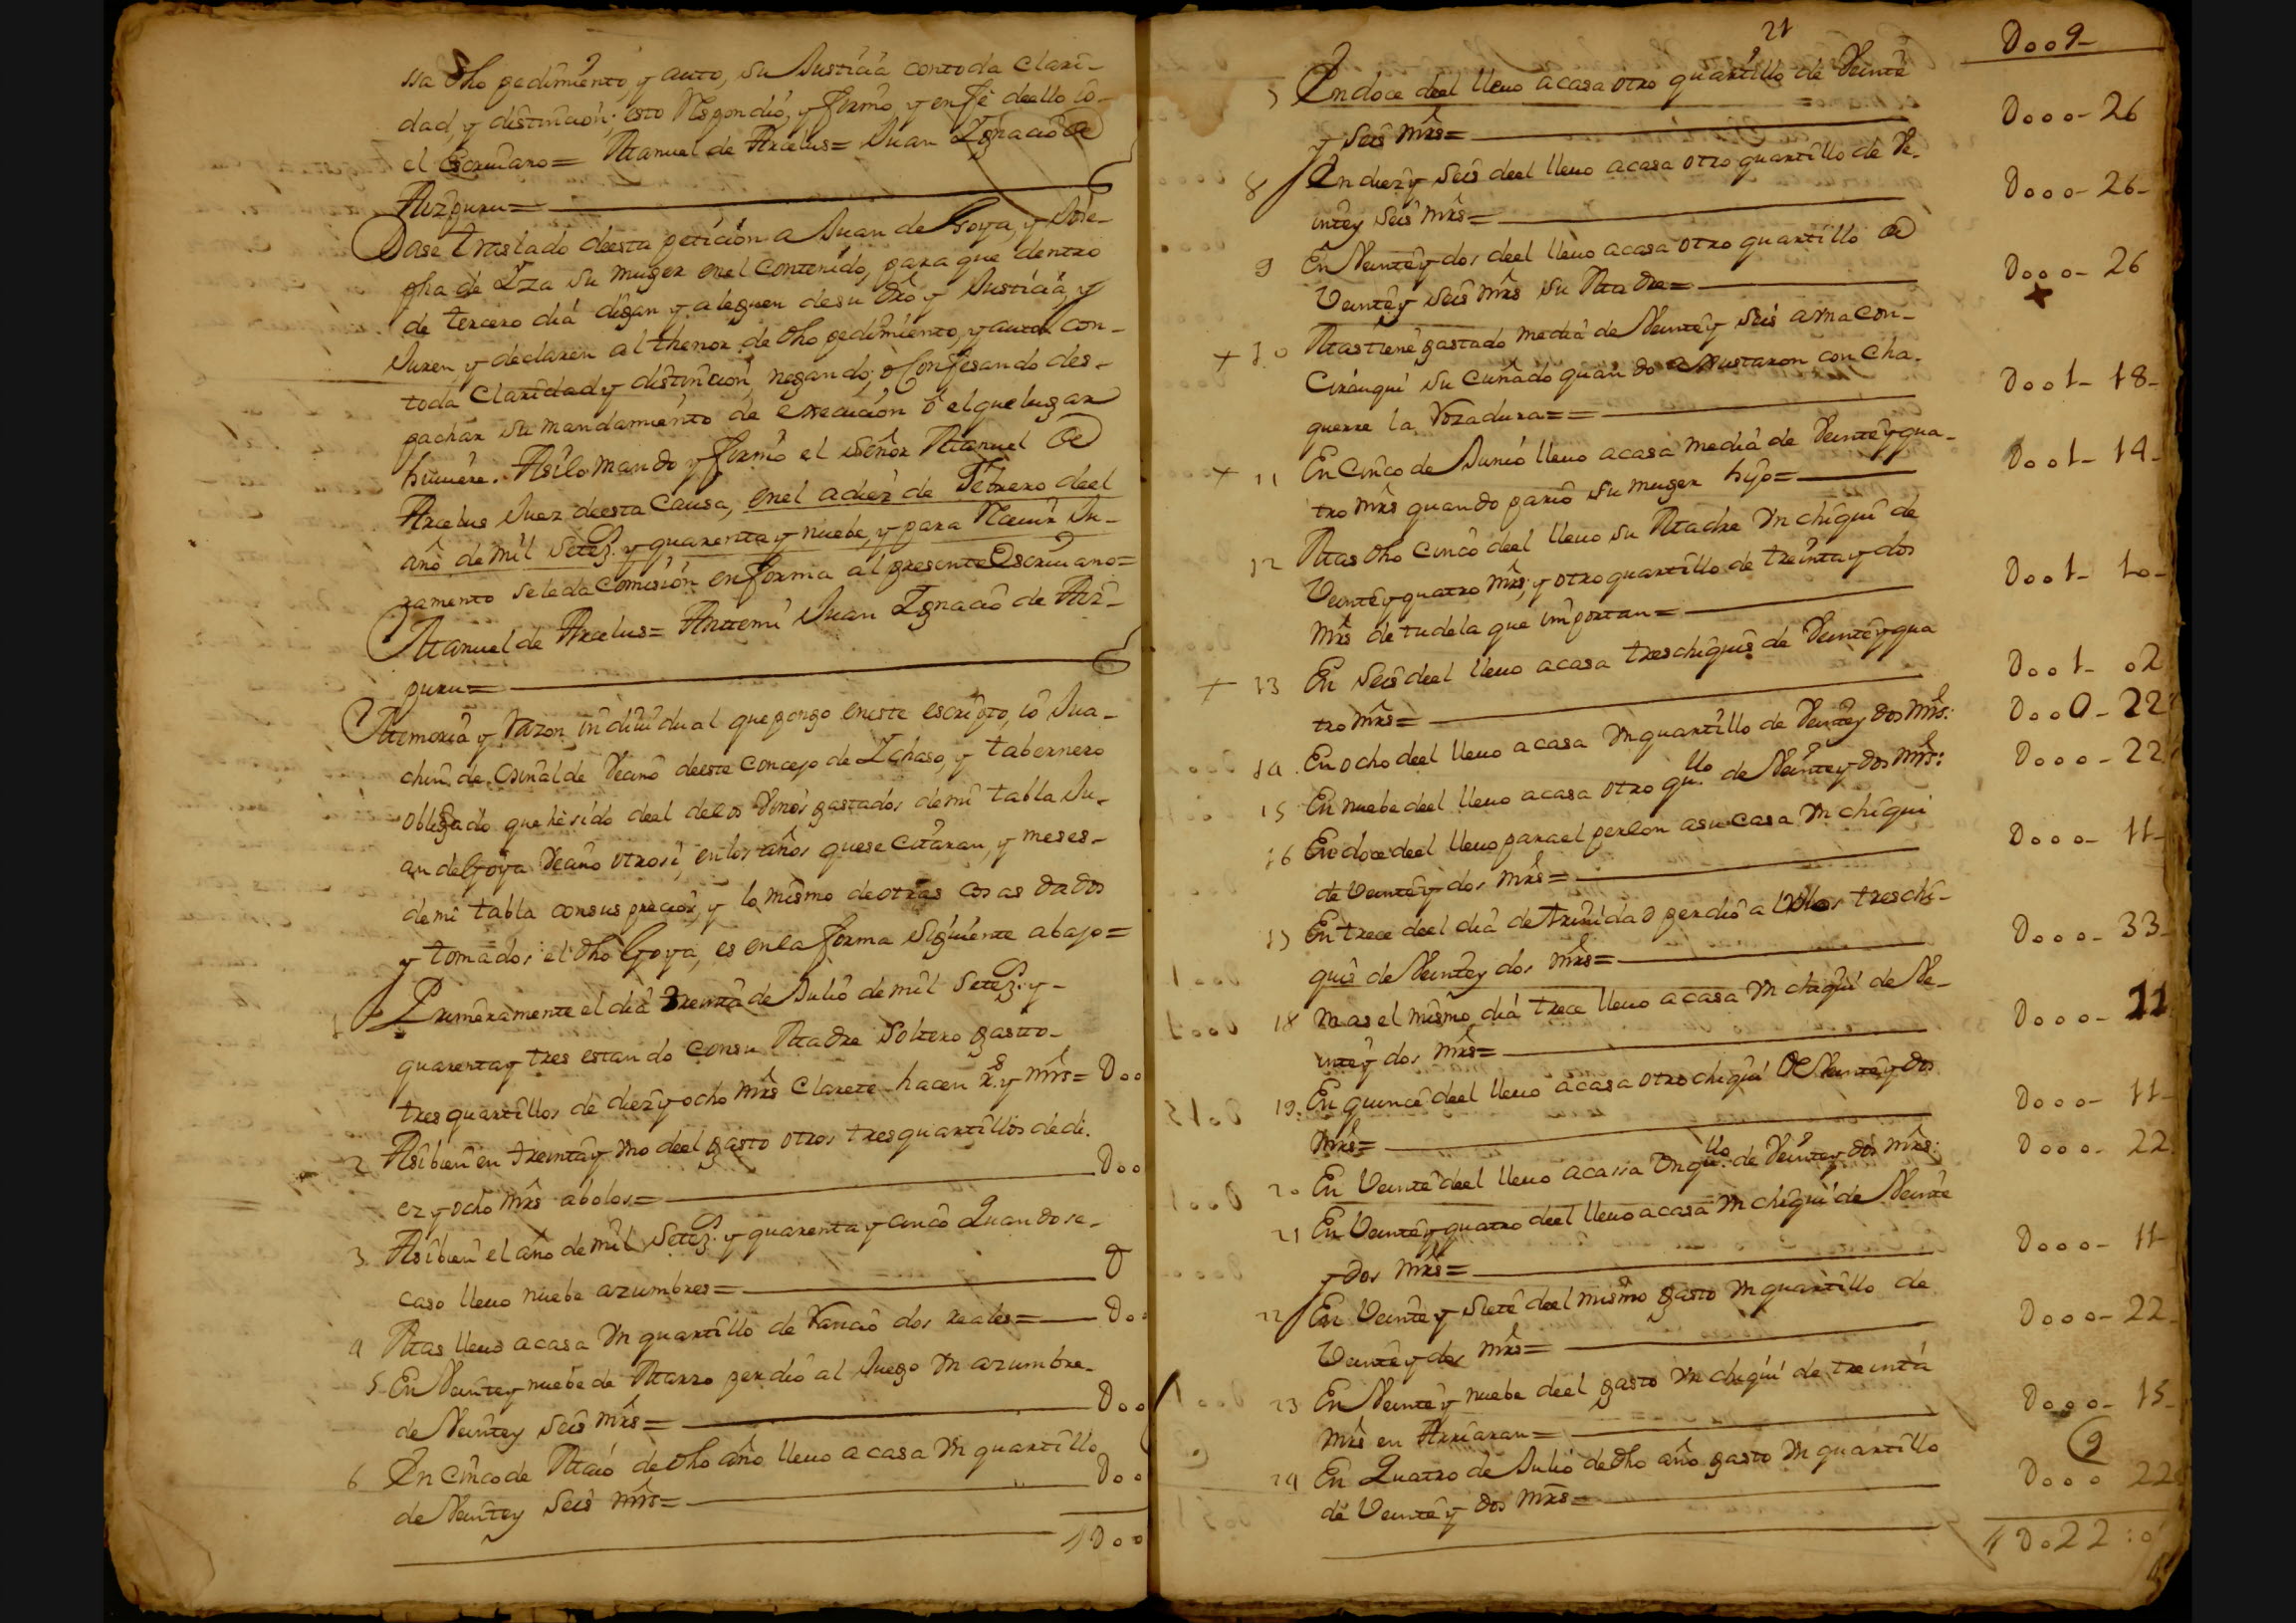 ssa dho pedimiento y auto, su Justicia contoda clari-
dad, y distincion; esto Respondió, y firmó y en fé deello io
el Escriuano = Manuel de Arcelus = Juan Ignacio de
Aizpuru =
Dase traslado deesta peticion a Juan de Goya, y Jose-
pha de Iza su muger enel contenido, para que dentro
de tercero dia digan y aleguen desu dro y Justicia, y
Juren y declaren al thenor de dho pedimiento, y auto con
toda claridad y distincion, negando, o Confesando des-
pachar su mandamiento de execucion ó elque lugar
huuiere. Asilo mando y firmó el señor Manuel de
Arcelus Juez deesta Causa, enel a diez de Febrero deel
año de mil setez.s y quarenta y nuebe, y para Receuir Ju-
ramento seleda Comision enforma al presente Escriuano =
Manuel de Arcelus = Antemi Juan Ignacio de Aiz-
puru =
Memoria y Razon indiuidual que pongo eneste escripto, io Jua-
chin de Osinalde Vecino deeste concejo de Ichaso, y tabernero
obligado que he sido deel delos Vinos gastados demi tabla Ju-
an de Goya Vecino otrosi, enlos años que se citaran, y meses
demi tabla consus precios, y lo mismo deotras cosas dados
y tomados el dho Goya, es enla forma siguiente abajo =
1 Primeramente el dia treinta de Julio de mil setez.s y
quarenta y tres estando consu Madre soltero gasto
tres quartillos de diez y ocho mrs Clarete hacen rs. y mrs = D00
2 Asibien en treinta y vno deel gasto otros tres quartillos dedi-
ez y ocho mrs abolos = D00
3 Asibien el año de mil setez.s y quarenta y cinco Quando se
caso lleuo nuebe azumbres = D
4 Mas lleuo a casa vn quartillo de Rancio dos reales = D0
5 En Veinte y nuebe de Marzo perdio al Juego vn azumbre
de Veinte y seis mrs = D00
6 En cinco de Maio de dho año lleuo a casa vn quartillo
de Veinte y seis mrs = D00
D00
21
D009-
7 En doce deel lleuo a casa otro quartillo de Veinte
y seis mrs = D000-26
8 En diez y seis deel lleuo a casa otro quartillo de Ve-
inte y seis mrs = D000-26-
9 En Veinte y dos deel lleuo a casa otro quartillo de
Veinte y seis mrs su Madre = D000-26
+ 10 Mas tiene gastado media de Veinte y seis a ma con
su cuñado quando ajustaron con Cha-
querre la Rozadura = = D001-18-
+ 11 En Cinco de Junio lleuo a casa media de Veinte y qua-
tro mrs quando pario su muger hijo = D001-14-
12 Mas dho cinco deel lleuo su Madre vn chiqui de
Veinte y quatro mrs, y otro quartillo de treinta y dos
mrs de tudela que importan = D001-10-
+ 13 En seis deel lleuo a casa tres chiquis de Veinte y qua
tro mrs = D001-02
14 En ocho deel lleuo a casa vn quartillo de Veinte y dos mrs. D000-22
15 En nuebe deel lleuo a casa otro qu.llo de Veinte y dos mrs: D000-22
16 En doce deel lleuo para el peon asu casa vn chiqui
de Veinte y dos mrs = D000-11-
17 En trece deel dia de trinidad perdio a bolos tres chi-
quis de Veinte y dos mrs = D000-33-
18 mas el mismo dia trece lleuo a casa vn chiqui de Ve-
inte y dos mrs = D000-11
19. En quince deel lleuo a casa otro chiqui de Veinte y dos
mrs = D000-11-
20 En Veinte deel lleuo a cassa vn qu.llo de Veinte y dos mrs. D000-22
21 En Veinte y quatro deel lleuo a casa vn chiqui de Veinte
y dos mrs = D000-11
22 En Veinte y siete deel mismo gasto vn quartillo de
Veinte y dos mrs = D000-22-
23 En Veinte y nuebe deel gasto vn chiqui de treinta
mrs en Arriaran = D000-15-
24 En Quatro de Julio de dho año gasto vn quartillo
de Veinte y dos mrs = D000 22
D022:0